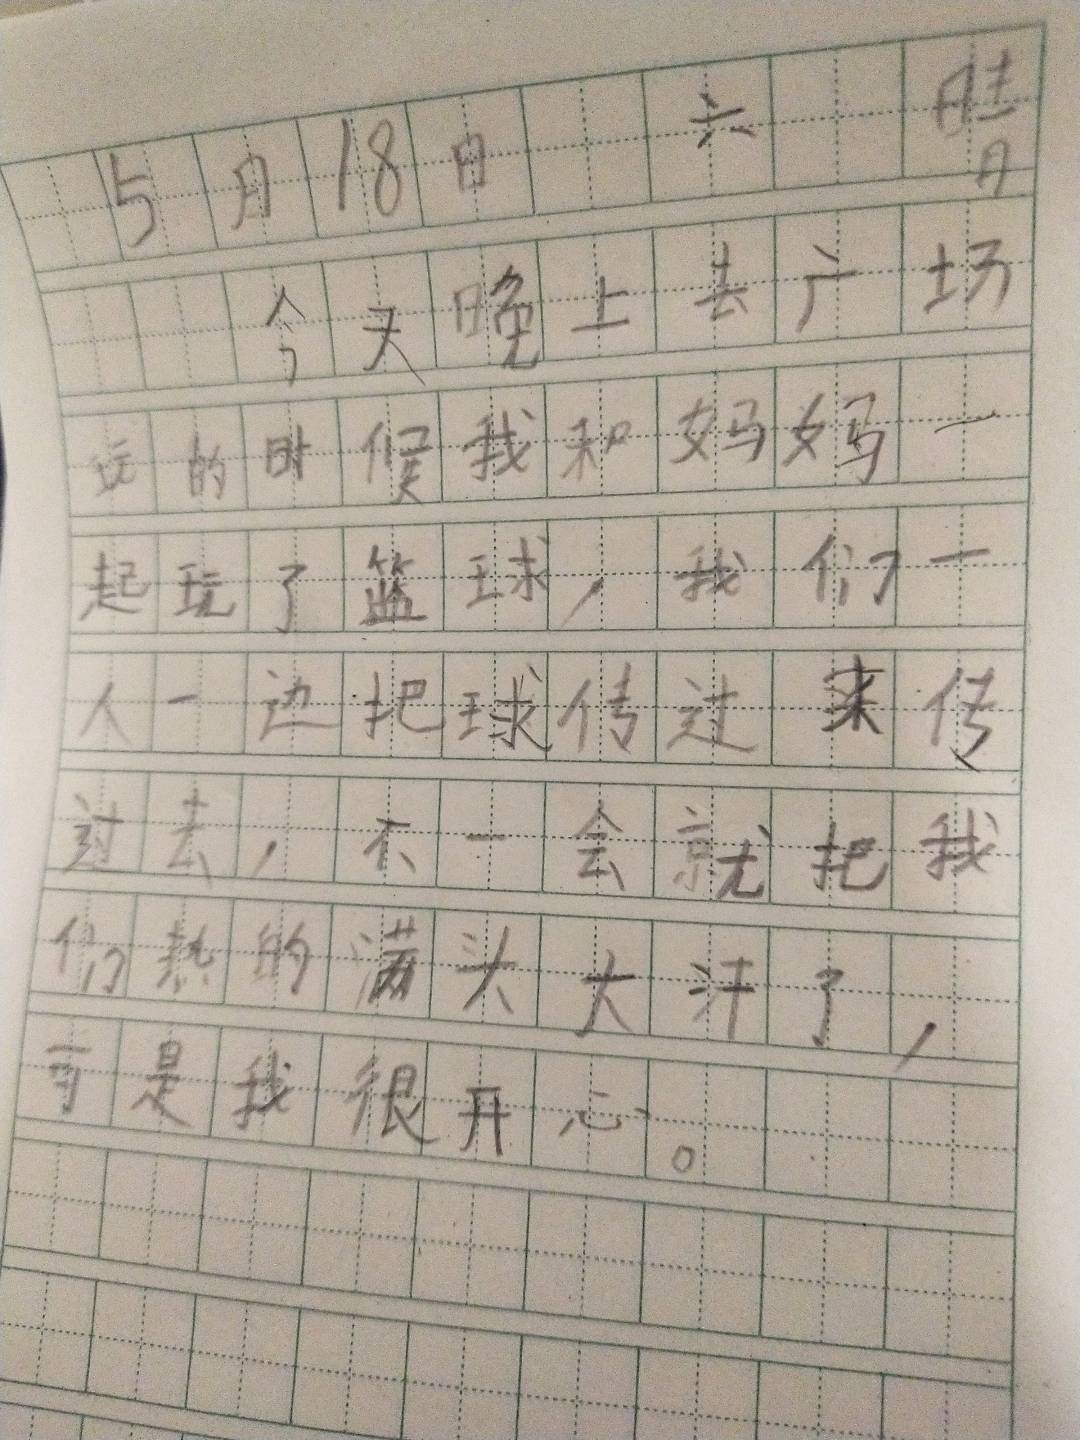 5月18日 六 晴
今天晚上去广场
玩的时候我和妈妈一
起玩了篮球，我们一
人一边把球传过来传
过去，不一会就把我
们热的满头大汗了，
可是我很开心。